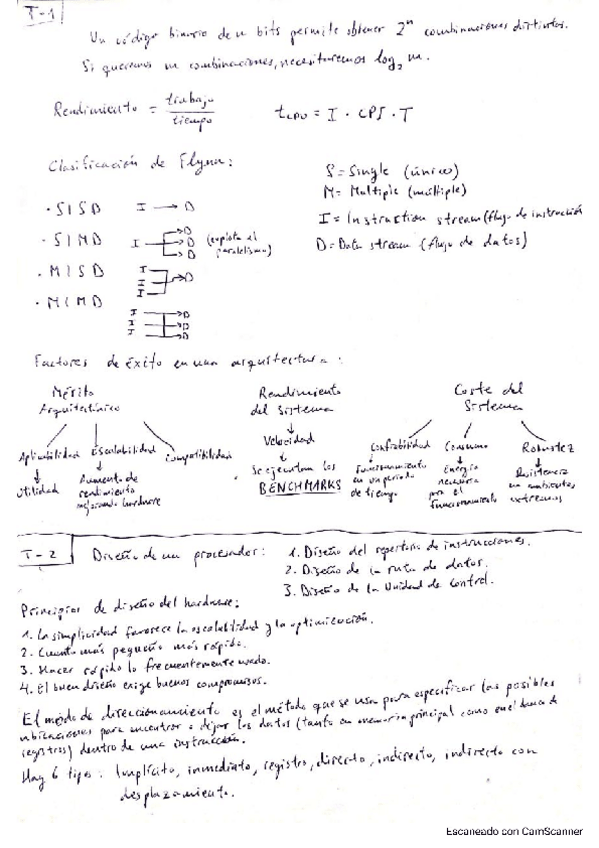 T-1
Un código binario de n bits permite obtener 2^n combinaciones distintas.
Si queremos m combinaciones, necesitaremos log₂ m.
Rendimiento = trabajo / tiempo
t_CPU = I · CPI · T
Clasificación de Flynn:
S = Single (único)
M = Multiple (múltiple)
I = Instruction stream (flujo de instrucción
D = Data stream (flujo de datos)
· SISD I → D
· SIMD I → D → D → D (explota el paralelismo)
· MISD I I I → D
· MIMD I → D I → D I → D
Factores de éxito en una arquitectura:
Mérito Arquitectónico
Aplicabilidad Escalabilidad Compatibilidad
Utilidad
Aumento de rendimiento mejorando hardware
Rendimiento del sistema
Velocidad
Se ejecutan los BENCHMARKS
Coste del Sistema
Confiabilidad Consumo Robustez
Funcionamiento en un periodo de tiempo
Energía necesaria para el funcionamiento
Resistencia en ambientes extremos
T-2
Diseño de un procesador:
1. Diseño del repertorio de instrucciones.
2. Diseño de la ruta de datos.
3. Diseño de la Unidad de Control.
Principios de diseño del hardware:
1. La simplicidad favorece la escalabilidad y la optimización.
2. Cuanto más pequeño más rápido.
3. Hacer rápido lo frecuentemente usado.
4. El buen diseño exige buenos compromisos.
El modo de direccionamiento es el método que se usa para especificar las posibles
ubicaciones para encontrar o dejar los datos (tanto en memoria principal como en el banco de
registros) dentro de una instrucción.
Hay 6 tipos: Implícito, inmediato, registro, directo, indirecto, indirecto con
desplazamiento.
Escaneado con CamScanner